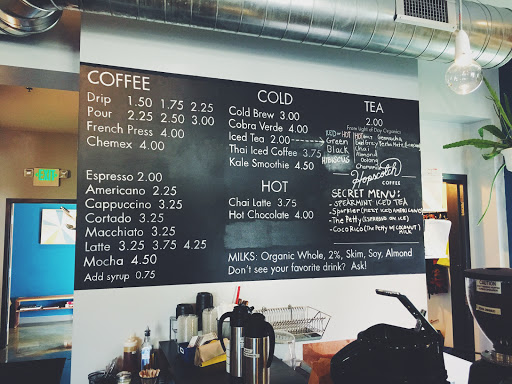 COFFEE
Drip 1.50 1.75 2.25
Pour 2.25 2.50 3.00
French Press 4.00
Chemex 4.00
Espresso 2.00
Americano 2.25
Cappuccino 3.25
Cortado 3.25
Macchiato 3.25
Latte 3.25 3.75 4.25
Mocha 4.50
Add syrup 0.75
COLD
Cold Brew 3.00
Cobra Verde 4.00
Iced Tea 2.00
Thai Iced Coffee 3.75
Kale Smoothie 4.50
HOT
Chai Latte 3.75
Hot Chocolate 4.00
MILKS: Organic Whole, 2%, Skim, Soy, Almond
Don't see your favorite drink? Ask!
TEA
2.00
From Light of Day Organics
ICED or HOT
Green
Black
HIBISCUS
HOT
Chai
Almond
Oolong
Hopscotch
COFFEE
SECRET MENU:
- SPEARMINT ICED TEA
- Sparkler
- The Petty (ESPRESSO ON ICE)
- Coco Rico (The PETTY W/ COCONUT MILK
EXIT
CAUTION